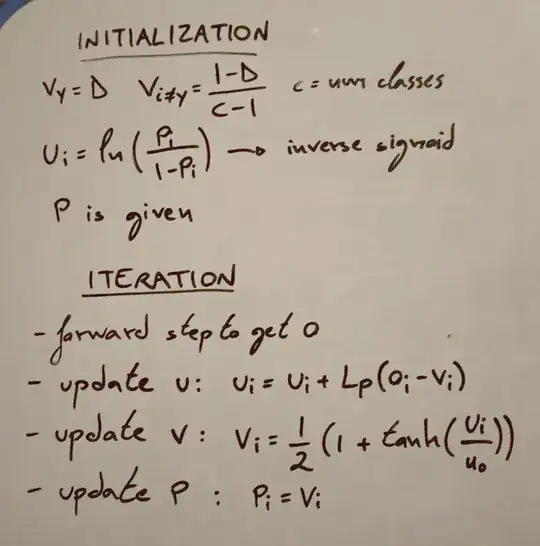 INITIALIZATION
V_y = D V_{i≠y} = \frac{1-D}{c-1} c = num classes
U_i = ln(\frac{P_i}{1-P_i}) → inverse sigmoid
P is given
ITERATION
- forward step to get O
- update u: u_i = u_i + L_p(O_i - V_i)
- update V: V_i = \frac{1}{2}(1 + tanh(\frac{U_i}{u_o}))
- update P: P_i = V_i